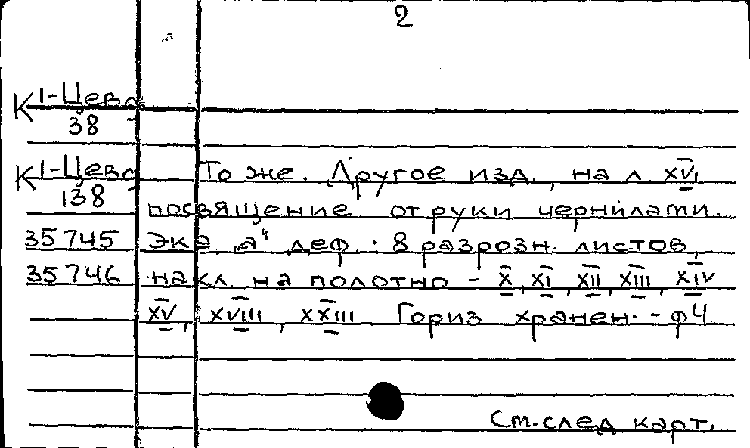 2
К 1-Цево
38
К 1-Цево То же. Другое изд., на л XVI
138 посвящение от руки чернилами.
35745 Экз „а“ деф.: 8 разрозн. листов,
35746 накл. на полотно - X, XI, XII, XIII, XIV
XV, XVIII, XXIII Гориз хранен. - ф4
См. след карт.